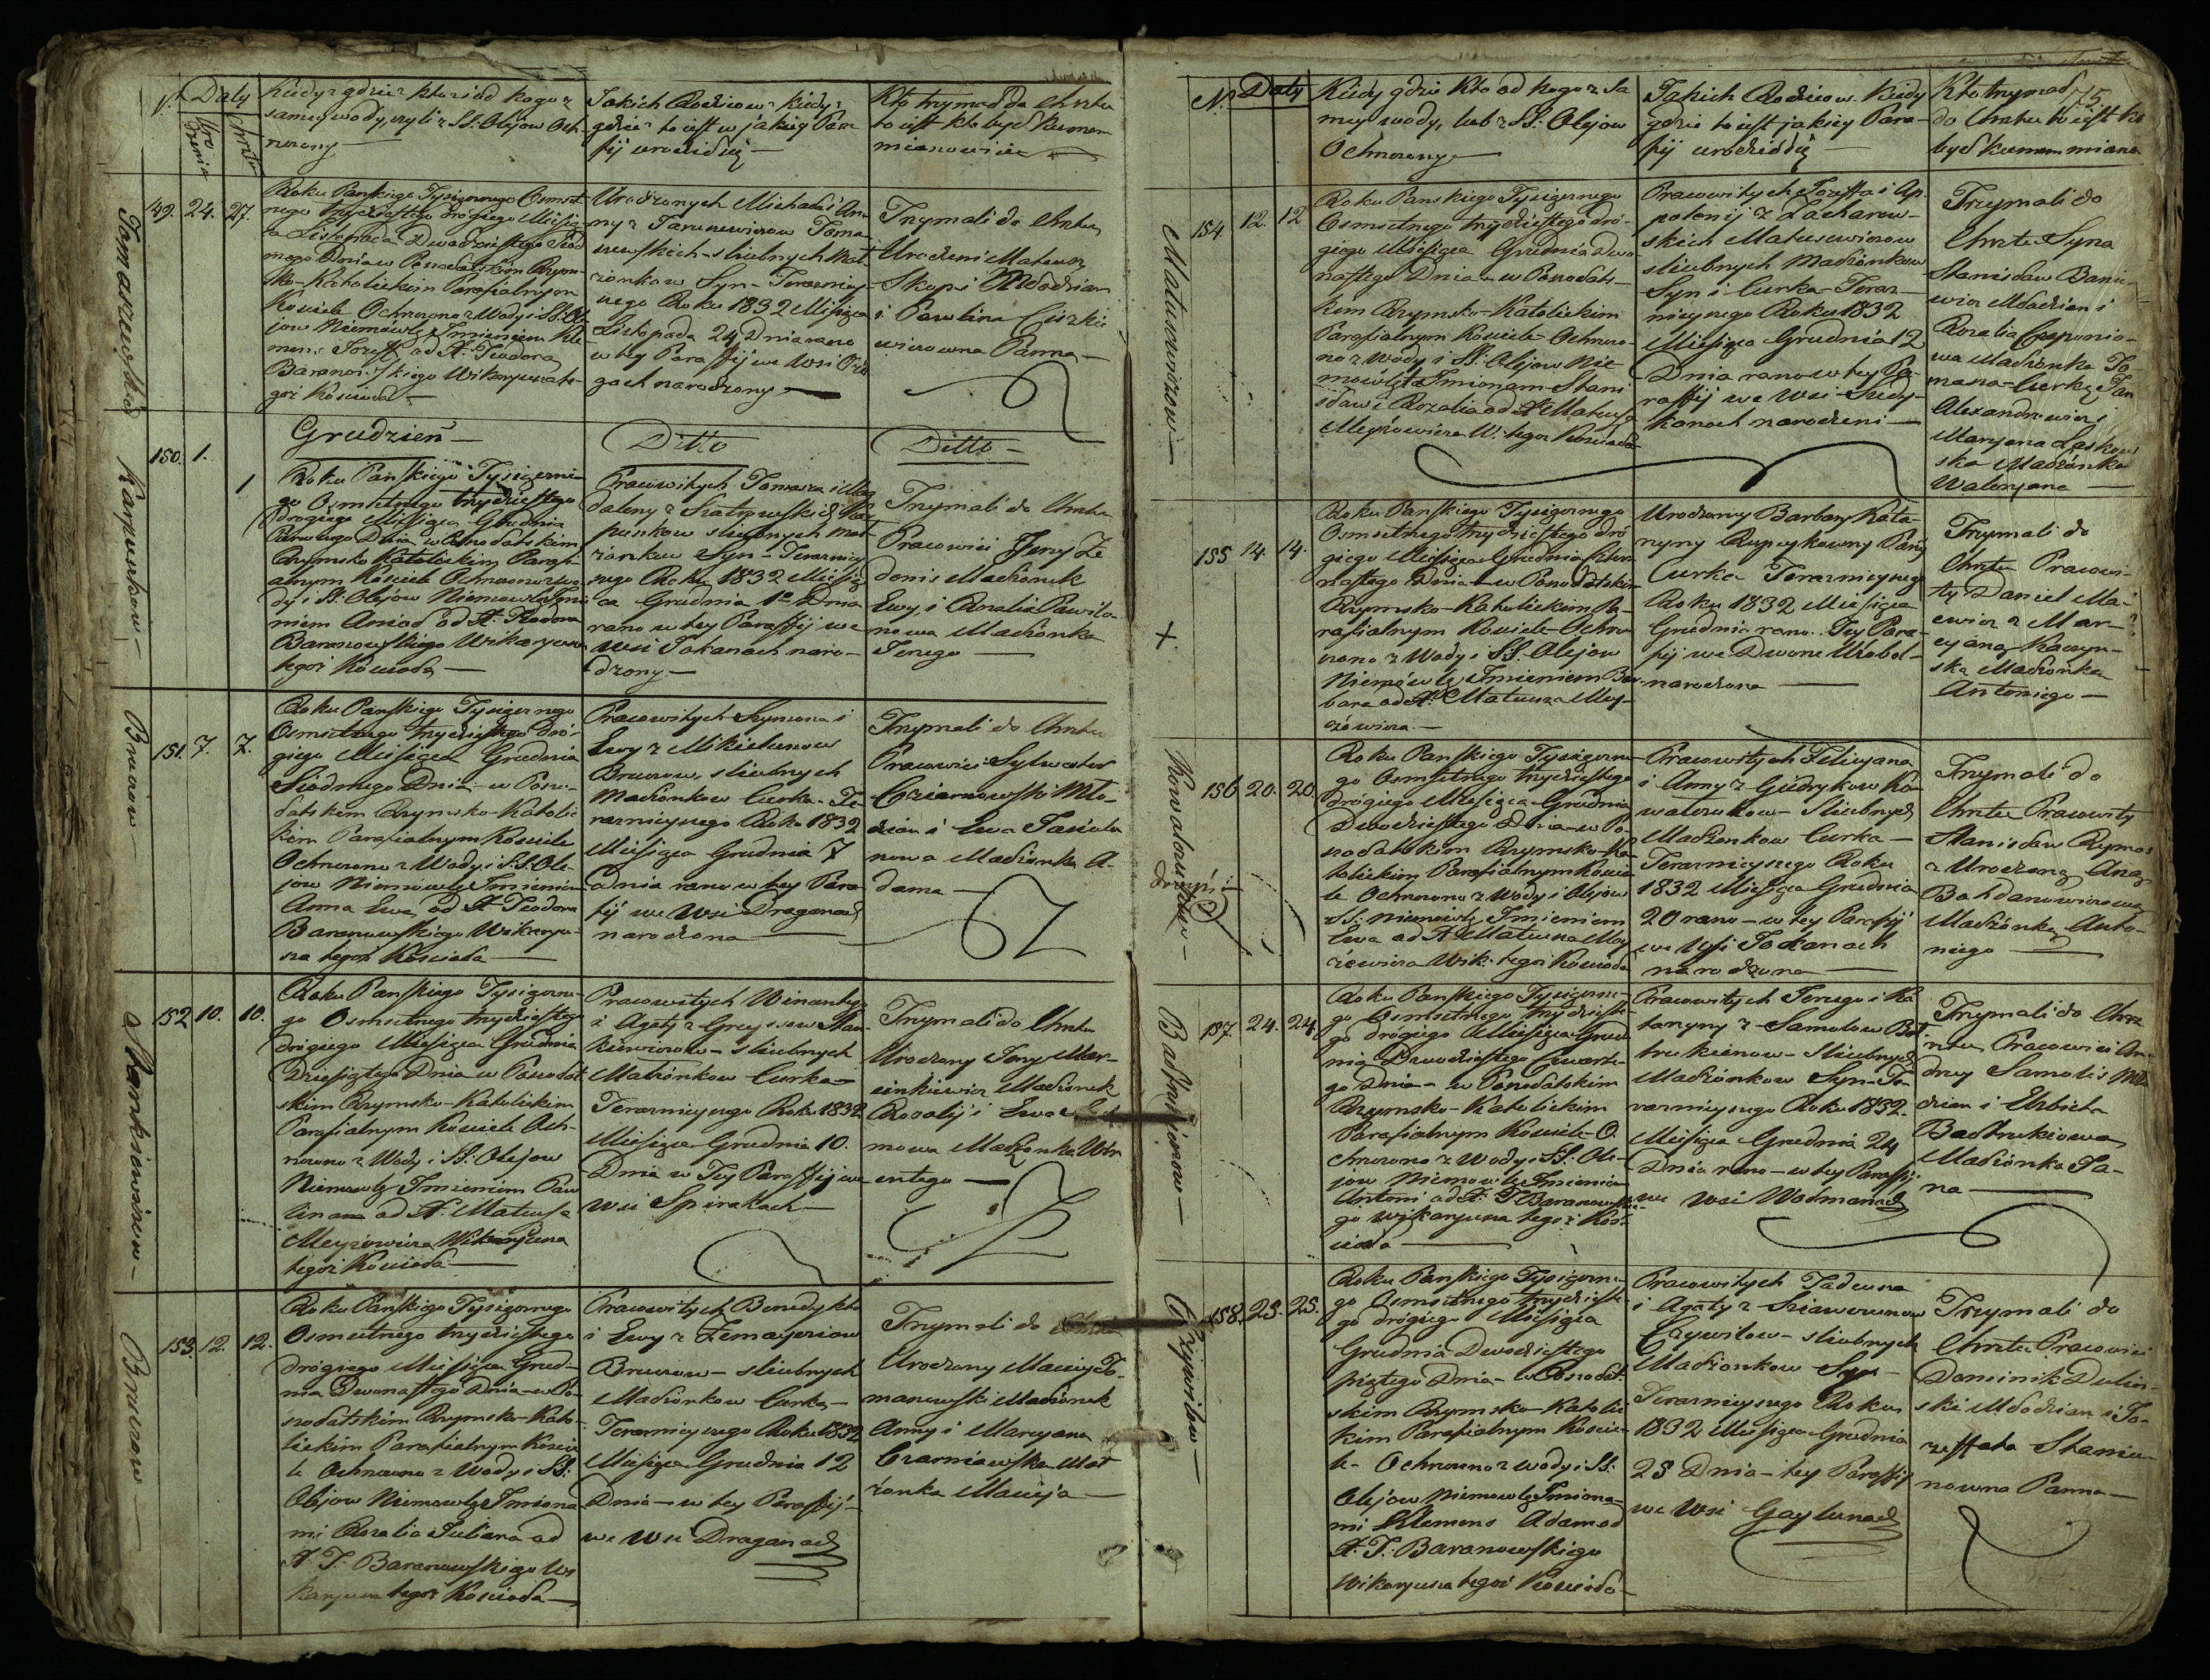 N.
Daty
Uro
dzenia
Chrztu
Kiedy? gdzie? kto? i od kogo z
samey wody, czyli z SS: Olejow Och-
rzczony —
Jakich Rodzicow? kiedy?
gdzie? to iest w jakiey Para
fij urodził się —
Kto trzymał do Chrztu
to iest kto był kumem
mianowicie
Tomaszewski
149. 24. 27.
Roku Pańskiego Tysiącznego Osmset-
nego trzydziestego drógiego Miesią-
ca Listopada Dwadziestego Siod
mego Dnia w Ponedelskim Rzym-
sko-Katolickim Parafialnym
Kosciele Ochrzczono z Wody i SS: Ole
jow Niemowle Imieniem Kle
mens Jozeff od X. Teodora
Baranowskiego Wikaryusza te-
goż Kościoła —
Urodzonych Michała i An-
ny z Tomaszewskich
slubnych Mał
żonkow Syn - Teraznieys
zego Roku 1832 Miesiąca
Listopada 24 Dnia rano
w tey Paraffij we Wsi
narodzony —
Trzymali do Chrztu
Urodzeni Mateusz
Skop i Młodzian
i Pawlina
Panna —
Karpuszkow —
150. 1.
1
Grudzień —
Ditto
Ditto —
Roku Pańskiego Tysiączne
go Osmsetnego trzydziestego
drógiego Miesiąca Grudnia
Pierwszego Dnia w Ponedelskim
Rzymsko Katolickim Parafi-
alnym Kosciele Ochrzczono z Wo
dy i SS: Olejow Niemowle Imie
niem od X. Teodora
Baranowskiego Wikaryusza
tegoż Kościoła —
Pracowitych Tomasza i Mag
daleny z
slubnych mał
żonkow Syn - Teraznieys
zego Roku 1832 Miesią
ca Grudnia 1o Dnia
rano w tey Paraffij we
Wsi Tokanach naro-
dzony —
Trzymali do Chrztu
Pracowici Jerzy Ze
donis Małżonek
Ewy, i Rozalia Pawilo-
nowa Małżonka
Jerzego —
Bruzow —
151. 7. 7.
Roku Pańskiego Tysiącznego
Osmsetnego trzydziestego dró-
giego Miesiąca Grudnia
Siodmego Dnia - w Pone-
delskim Rzymsko-Katolic
kim Parafialnym Kosciele
Ochrzczono z Wody i SS. Ole-
jow Niemowle Imieniem
Anna Ewa od X Teodora
Baranowskiego Wikaryu-
sza tegoż Kościoła —
Pracowitych Szymona i
Ewy z Mikielunow
Bruzow, slubnych
Małżonkow Curka - Te-
raznieyszego Roku 1832
Miesiąca Grudnia 7
Dnia rano w tey Para
fij we Wsi Draganach
narodzona —
Trzymali do Chrztu
Pracowici Sylwester
Czerniawski Mło-
dzian i Ewa
nowa Małżonka A-
dama —
Stankiewiczow —
152 10. 10.
Roku Pańskiego Tysiączne-
go Osmsetnego trzydziestego
drógiego Miesiąca Grudnia
Dziesiątego Dnia w Ponedel
skim Rzymsko-Katolickim
Parafialnym Kosciele Och-
rzczono z Wody i SS: Olejow
Niemowle Imieniem Paw
lina od X. Mateusza
Meyżowicza Wikaryusza
tegoż Kościoła —
Pracowitych Wincentego
i Agaty z Stan-
kiewiczow - slubnych
Małżonkow Curka —
Teraznieyszego Roku 1832
Miesiąca Grudnia 10.
Dnia w Tey Paraffij we
Wsi Spirakach —
Trzymali do Chrztu
Urodzony Jerzy Mar-
cinkiewicz Małżonek
Rozalij i Ewa
mowa Małżonka Win
centego —
Bruzow —
153. 12. 12.
Roku Pańskiego Tysiącznego
Osmsetnego trzydziestego
drógiego Miesiąca Grud-
nia Dwonastego Dnia - w Po-
nedelskim Rzymsko-Kato-
lickim Parafialnym Kosci
le Ochrzczono z Wody i SS:
Olejow Niemowle Imiona
mi Rozalia Juliana od
X T: Baranowskiego Wi
karyusza tegoż Kościoła —
Pracowitych Benedykta
i Ewy z
Bruzow - slubnych
Małżonkow Curka —
Teraznieyszego Roku 1832
Miesiąca Grudnia 12
Dnia - w tey Paraffij -
we Wsi Draganach
Trzymali do Chrztu
Urodzony Maciey To-
manowski Małżonek
Anny i Maryana
Czarniawska Mał
żonka Macieja —
N.
Daty
75.
Kiedy gdzie Kto od kogo z Sa
mey wody, lub z SS: Olejow
Ochrzczony —
Jakich Rodzicow Kiedy
gdzie to iest jakiey Para-
fij urodził się —
Kto trzymał
do Chrztu to iest kto
był kumem miano
Matusewiczow —
154. 12. 12
Roku Panskiego Tysiącznego
Osmsetnego trzydziestego dró-
giego Miesiąca Grudnia Dwo
nastego Dnia - w Ponedels-
kim Rzymsko-Katolickim
Parafialnym Kosciele Ochrzczo-
no z Wody i SS. Olejow Nie-
mowlęta Imionam - Stani
sław i Rozalia od X Mateusza
Meyżowicza W. tegoż Kościoła
Pracowitych Jozeffa i Ap-
polonij z Zacharew-
skich Matusewiczow
slubnych Małżonkow
Syn i Curka - Teraz-
nieyszego Roku 1832
Miesiąca Grudnia 12
Dnia rano w tey Pa-
raffij we Wsi -
kanach narodzeni —
Trzymali do
Chrztu Syna
Stanisław
Młodzian i
Rozalia Czeponio-
wa Małżonka To-
masza - Curkę Jan
Alexandrowicz i
Maryana Laskow
ska Małżonka
Waleryana —
+
155 14. 14.
Roku Pańskiego Tysiącznego
Osmsetnego trzydziestego dró
giego Miesiąca Grudnia Czter
nastego Dnia - w Ponedelskim
Rzymsko-Katolickim Pa-
rafialnym Kosciele Ochrz
czono z Wody i SS. Olejow
Niemowle Imieniem Bar-
bara od X. Mateusza Mey-
żowicza —
Urodzoney Barbary Kata-
rzyny Panny
Curka Teraznieyszego
Roku 1832 Miesiąca
Grudnia rano. Tey Para-
fij we Dworze
narodzona —
Trzymali do
Chrztu Pracowi-
ty Daniel
z Mar-
cyaną
ską Małżonką
Antoniego —
Kowaloniukow —
156 20. 20
Roku Pańskiego Tysiączne-
go Osmsetnego trzydziestego
drógiego Miesiąca Grudnia
Dwodziestego Dnia - w Po-
nedelskim Rzymsko-Ka-
tolickim Parafialnym Kościele
Ochrzczono z Wody i Olejow
SS: Niemowle Imieniem
Ewa od X Mateusza Mey
żowicza Wik. tegoż Kościoła
Pracowitych Felicyana
i Anny z Giedrykow Ko-
slubnych
Małżonkow Curka —
Teraznieyszego Roku
1832 Miesiąca Grudnia
20 rano - w tey Parafij
we Wsi Tokanach
narodzona —
Trzymali do
Chrztu Pracowity
Stanisław
z Urodzoną Aną
Bohdanowiczową
Małżonką Anto-
niego —
157. 24. 24.
Roku Pańskiego Tysiączne-
go Osmsetnego trzydziest
go drógiego Miesiąca Grud
nia Dwodziestego Czwarte-
go Dnia - w Ponedelskim
Rzymsko-Katolickim
Parafialnym Kosciele O-
chrzczono z Wody i SS: Ole-
jow Niemowle Imieniem
Antoni od X. T Baranowskie-
go Wikaryusza tegoż Koś-
cioła —
Pracowitych Jerzego i Ka
tarzyny z Samolow
slubnych
Małżonkow Syn - Te-
raznieyszego Roku 1832.
Miesiąca Grudnia 24
Dnia rano - w tey Paraffij
we Wsi Wozmanach
Trzymali do Chrz
tu Pracowici An-
drzy Samolis Mło
dzian i Elżbieta
Małżonka Ja-
na —
Czywilow —
158. 25. 25.
Roku Pańskiego Tysiączne-
go Osmsetnego trzydziest
go drógiego Miesiąca
Grudnia Dwodziestego
piątego Dnia - w Ponedel
skim Rzymsko-Katolic
kim Parafialnym Koście-
le - Ochrzczono z Wody i SS:
Olejow Niemowle Imiona-
mi Klemens Adam od
X. T. Baranowskiego
Wikaryusza tegoż Kościoła —
Pracowitych Tadeusza
i Agaty z
Czywilow - slubnych
Małżonkow Syn —
Teraznieyszego Roku
1832 Miesiąca Grudnia
25 Dnia - tey Paraffij
we Wsi Gaylunach
Trzymali do
Chrztu Pracowici
Dominik Dulin-
ski Młodzian i Jo-
zeffata
Panna —